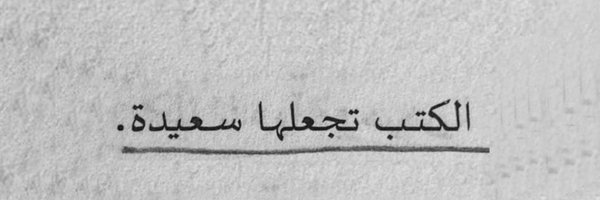 الكتب تجعلها سعيدة.